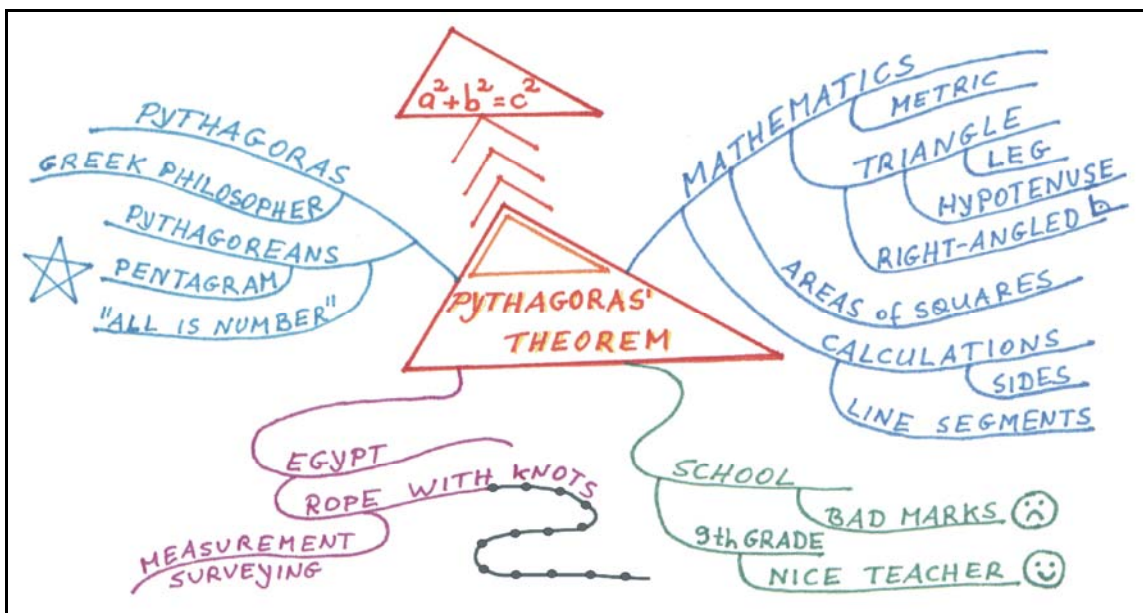 a²+b²=c²
PYTHAGORAS'
THEOREM
PYTHAGORAS
GREEK PHILOSOPHER
PYTHAGOREANS
PENTAGRAM
"ALL IS NUMBER"
MATHEMATICS
METRIC
TRIANGLE
LEG
HYPOTENUSE
RIGHT-ANGLED
AREAS of SQUARES
CALCULATIONS
SIDES
LINE SEGMENTS
EGYPT
ROPE WITH KNOTS
MEASUREMENT
SURVEYING
SCHOOL
BAD MARKS
9th GRADE
NICE TEACHER